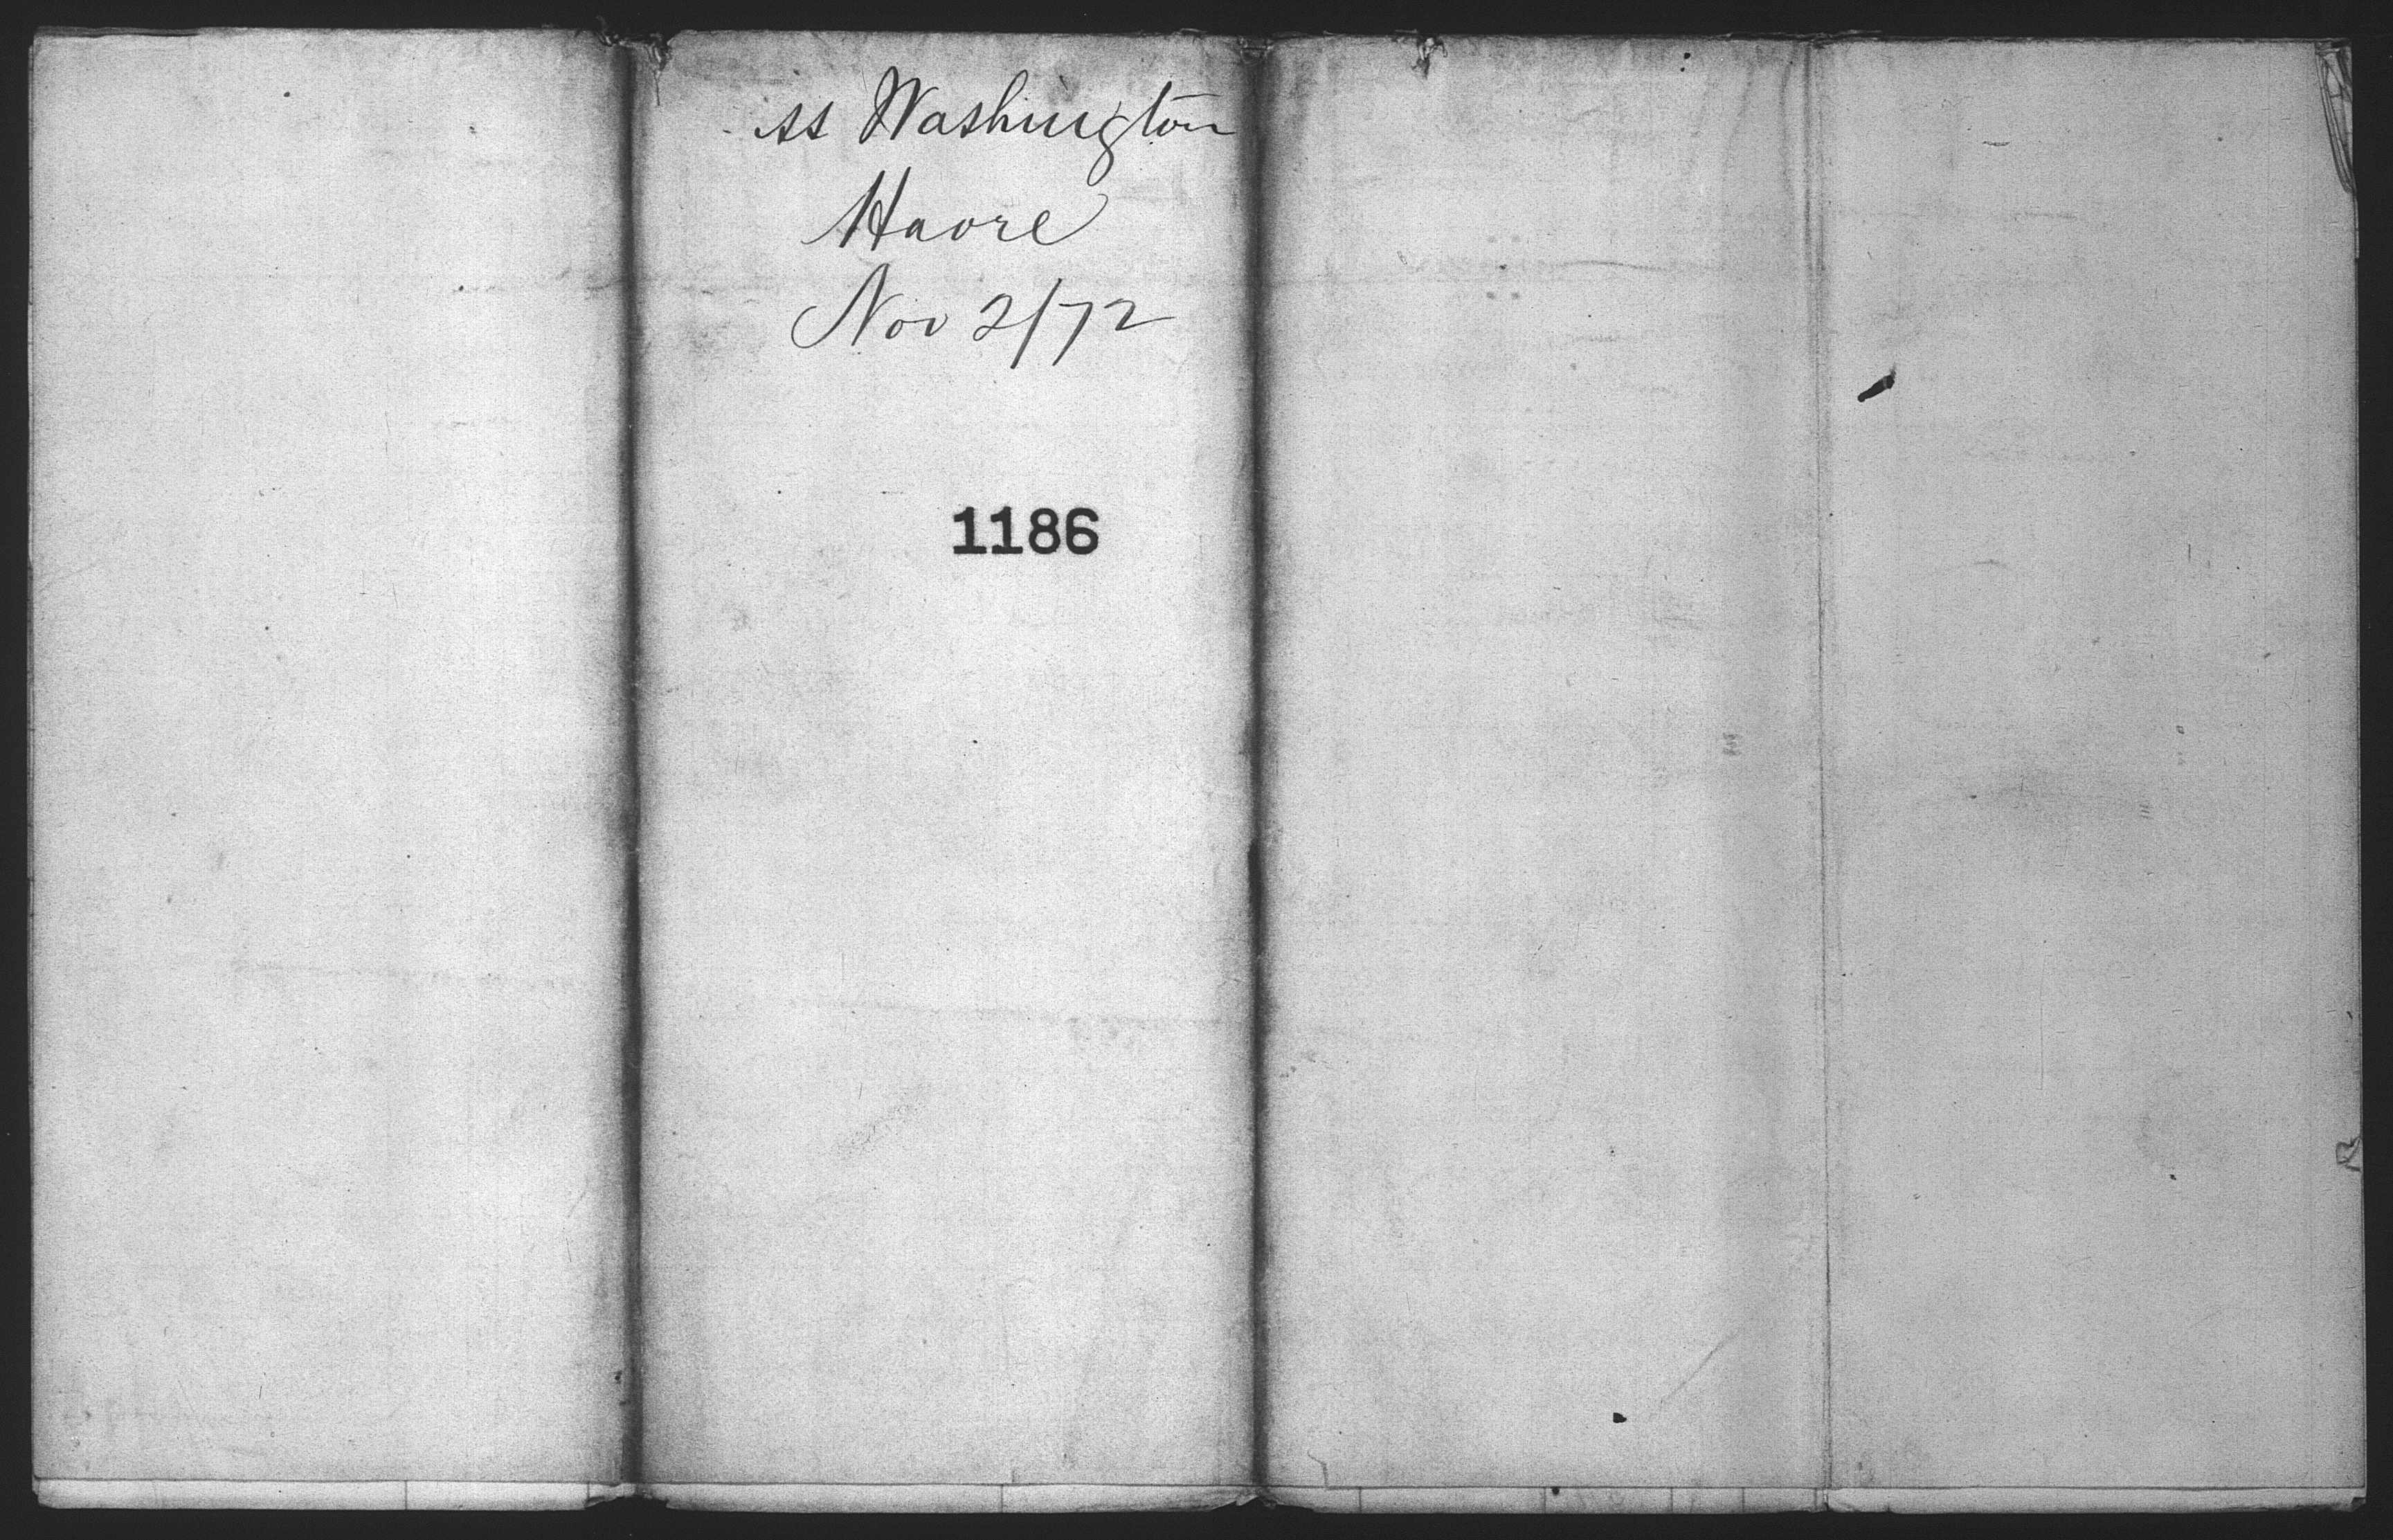 ss Washington
Havre
Nov 2/72
1186